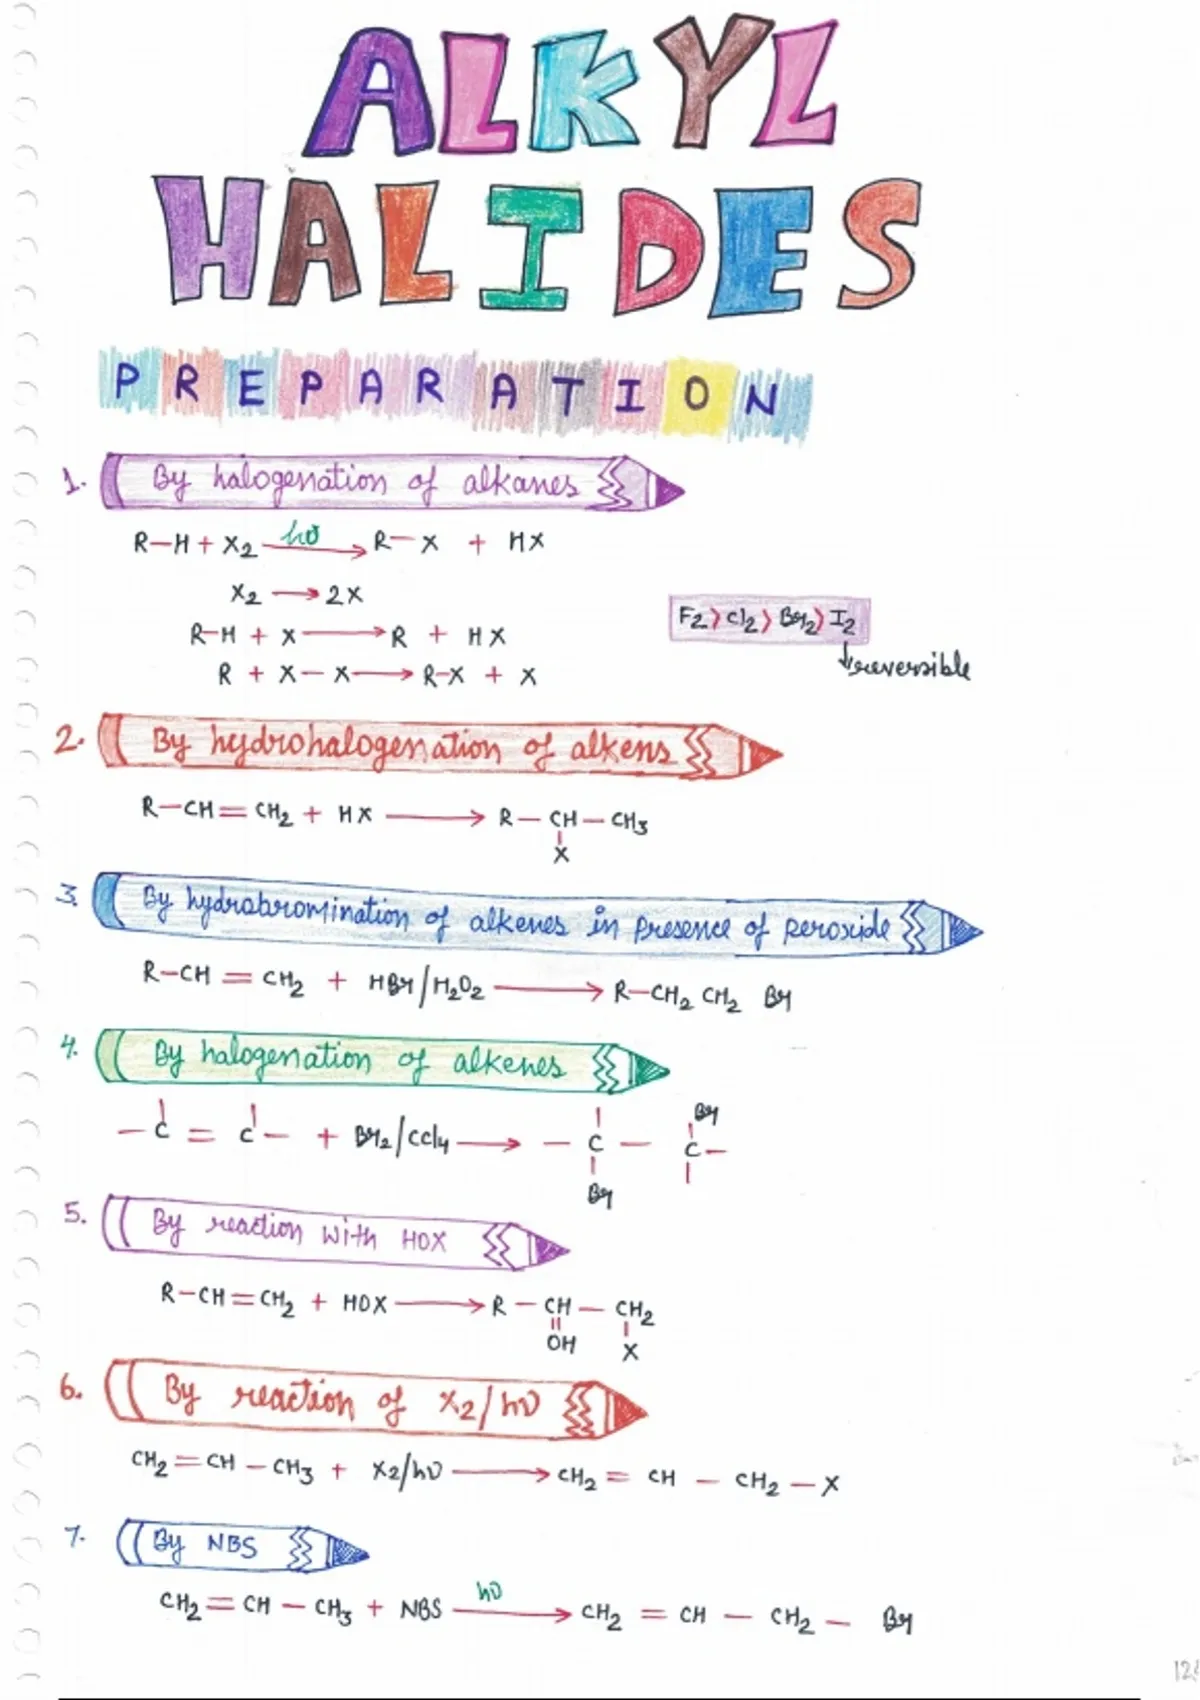 ALKYL
HALIDES
PREPARATION
1. By halogenation of alkanes
R-H + X2 hν → R-X + HX
X2 → 2X
R-H + X → R + HX
F2 > Cl2 > Br2 > I2
R + X-X → R-X + X
↓ reversible
2. By hydrohalogenation of alkens
R-CH=CH2 + HX → R-CH-CH3
X
3. By hydrobromination of alkenes in presence of peroxide
R-CH=CH2 + HBr/H2O2 → R-CH2 CH2 Br
4. By halogenation of alkenes
Br
-C=C- + Br2/CCl4 → -C- C-
Br
5. By reaction with HOX
R-CH=CH2 + HOX → R-CH-CH2
OH X
6. By reaction of X2/hν
CH2=CH-CH3 + X2/hν → CH2=CH-CH2-X
7. By NBS
CH2=CH-CH3 + NBS hν → CH2=CH-CH2-Br